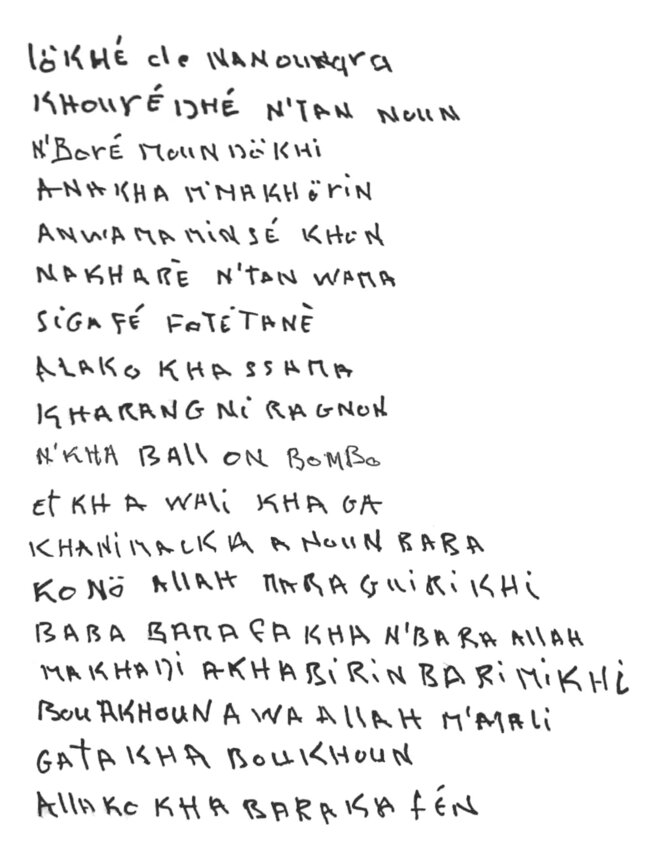 löKHÉ de NANOUMara
KHOURÉ DHÉ N'TAN NOUN
N'BORÉ MOUN DÖKHI
ANAKHA M'MAKHÖRIN
ANWAMAMINSÉ KHÖN
NAKHARÈ N'TAN WAMA
SIGAFÉ FOTÉTANÈ
ALAKO KHASSAMA
KHARANGNI RAGNON
N'KHA BAllON BOMBO
Et KHA WALI KHAGA
KHANIMALKIA A NOUN BABA
KONÖ ALLAH MARAGUIRIKHI
BABA BARAFA KHA N'BARA ALLAH
MAKHADI AKHABIRIN BARI MIKHI
BOU AKHOUN AWA ALLAH M'AMALI
GATA KHA BOUKHOUN
ALLAKO KHA BARAKA FÉN